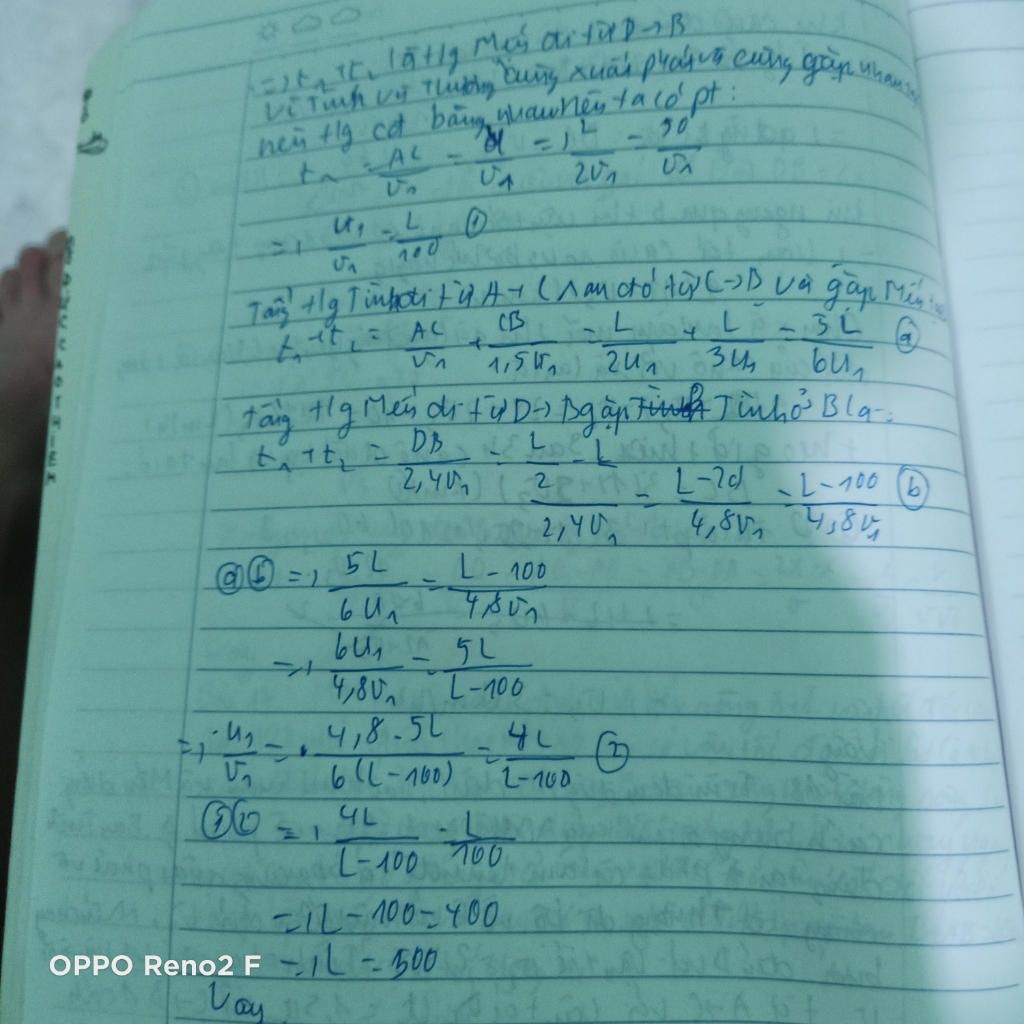 => t₁ + t₂ là t/g Mến đi từ D→B
Vì Tình và Thương cùng xuất phát và cùng gặp nhau
nên t/g cđ bằng nhau nên ta có pt:
t₁ = AC/v₁ = d/v₁ => L/2v₁ = 50/v₁
=> u₁/v₁ = L/100 ①
Tổng t/g Tình đi từ A→C sau đó từ C→B và gặp Mến
t₁+t₂ = AC/v₁ + CB/1,5v₁ = L/2u₁ + L/3u₁ = 5L/6u₁ ⓐ
Tổng t/g Mến đi từ D→B gặp Tình ở B là:
t₁ + t₂ = DB/2,4v₁ = L/2 - L/2,4v₁ = L-2d/4,8v₁ = L-100/4,8v₁ ⓑ
ⓐⓑ => 5L/6u₁ = L-100/4,8v₁
=> 6u₁/4,8v₁ = 5L/L-100
=> u₁/v₁ = 4,8.5L/6(L-100) = 4L/L-100 ②
①② => 4L/L-100 = L/100
=> L-100=400
=> L=500
Vậy
OPPO Reno2 F